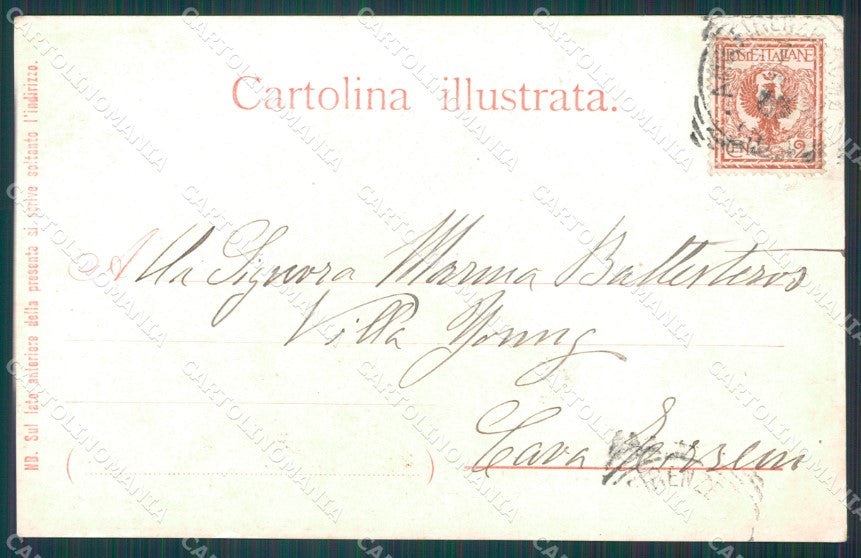 Cartolina illustrata.
POSTE ITALIANE
Alla Signora Marma Ballesteros
Villa Young
Cava
FIRENZE
NB. Sul lato anteriore della presente si scrive soltanto l'indirizzo.
CARTOLINOMANIA